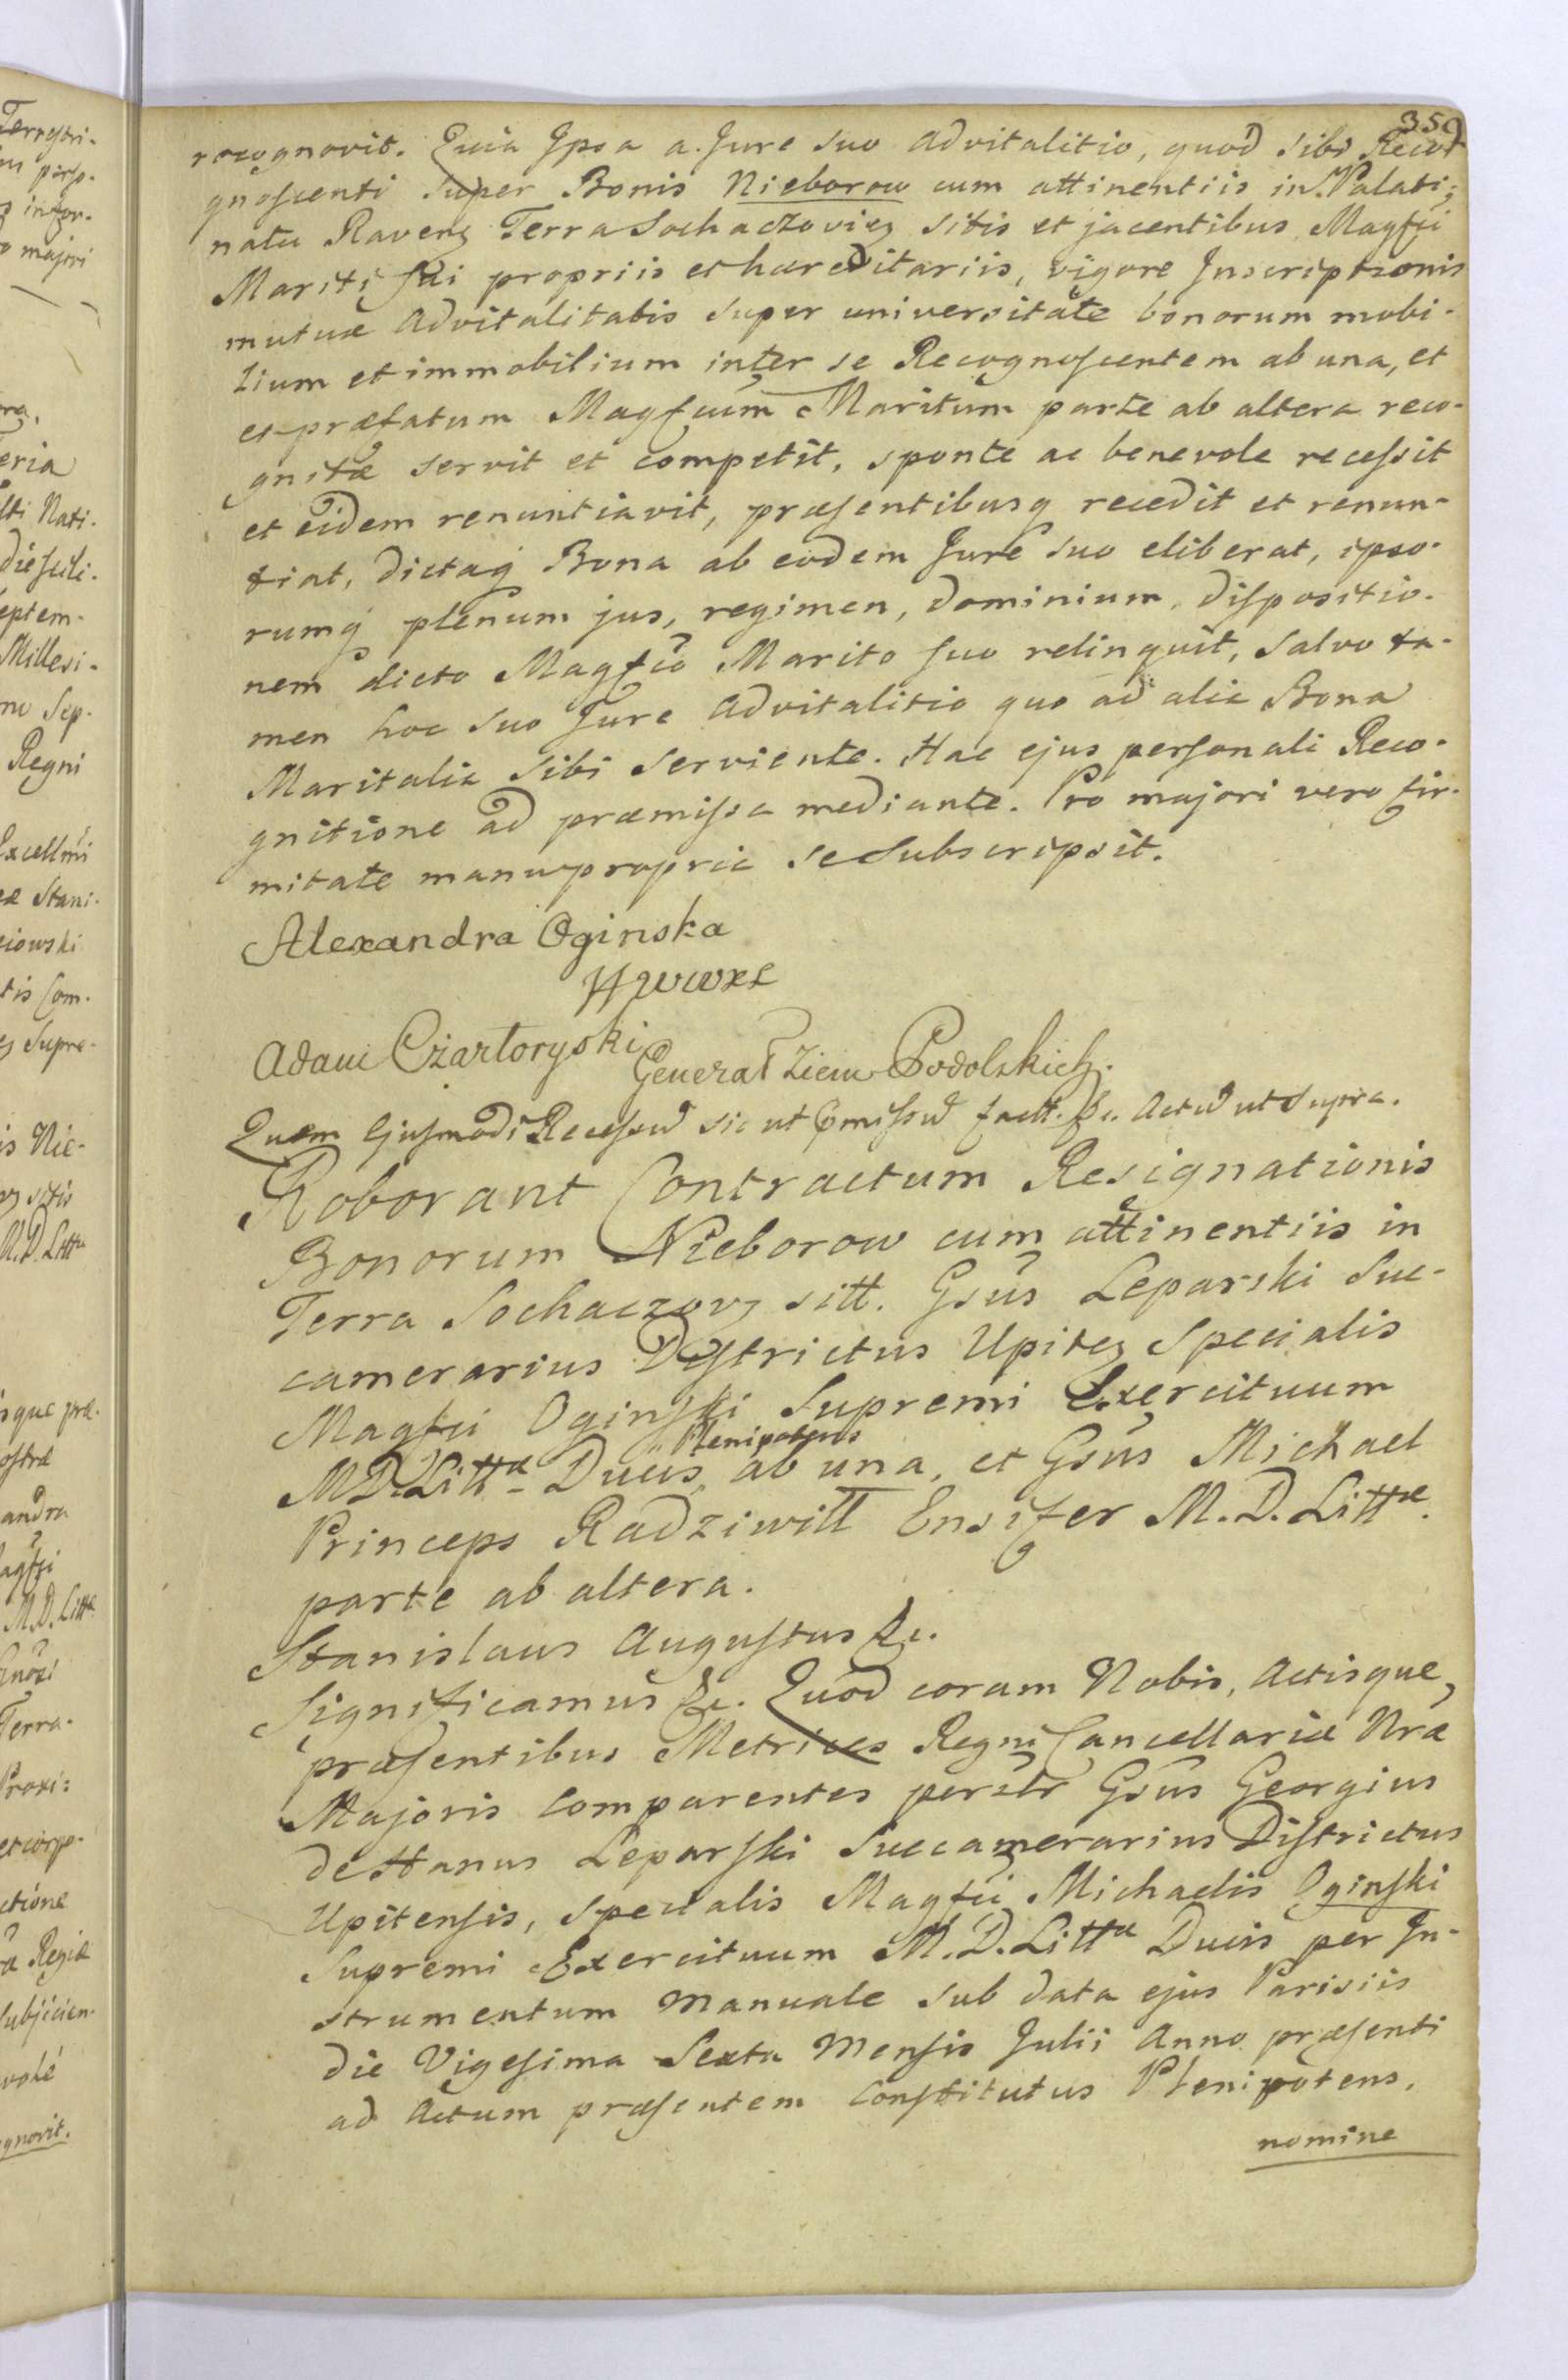 359
recognovit. Quia Ipsa a Jure suo Advitalitio, quod sibi Reco-
gnoscenti super Bonis Nieborow cum attinentiis in Palati-
natu Ravens Terra Sochaczovien sitis et jacentibus Magfci
Mariti sui propriis et haereditariis, vigore Inscriptionis
mutuæ Advitalitatis super universitate bonorum mobi-
lium et immobilium inter se Recognoscentem ab una, et
et præfatum Magfcum Maritum parte ab altera reco-
gnitæ servit et competit, sponte ac benevole recessit
et eidem renuntiavit, præsentibusq recedit et renun-
tiat, dictaq Bona ab eodem Jure suo eliberat, ipso-
rumq plenum jus, regimen, dominium, dispositio-
nem dicto Magfco Marito suo relinquit, salvo ta-
men hoc suo Jure Advitalitio quo ad alia Bona
Maritalia sibi serviente. Hac ejus personali Reco-
gnitione ad præmissa mediante. Pro majori vero fir-
mitate manu propria se subscripsit.
Alexandra Oginska
HWWXL
Adam Czartoryski
Generał Ziem Podolskich.
Quem Ejusmodi Recessũ sic ut pmissũ factt. &c. Actũ ut supra.
Roborant Contractum Resignationis
Bonorum Nieborow cum attinentiis in
Terra Sochaczov sitt. Gsus Leparski Suc-
camerarius Districtus Upiten Specialis
Magfci Oginski Supremi Exercituum
Plenipotens
M.D. Littæ Ducis, ab una, et Gsus Michael
Princeps Radziwill Ensifer M. D. Littæ.
parte ab altera.
Stanislaus Augustus &c.
Significamus &c. Quod coram Nobis, Actisque
præsentibus Metrices Regni Cancellariæ Nræ
Majoris Comparentes persltr Gsus Georgius
Leparski Succamerarius Districtus
Upitensis, specialis Magfci Michaelis Oginski
Supremi Exercituum M. D. Littæ Ducis per In-
strumentum Manuale sub data ejus Parisiis
die Vigesima Sexta Mensis Julii Anno præsenti
ad Actum præsentem Constitutus Plenipotens,
nomine